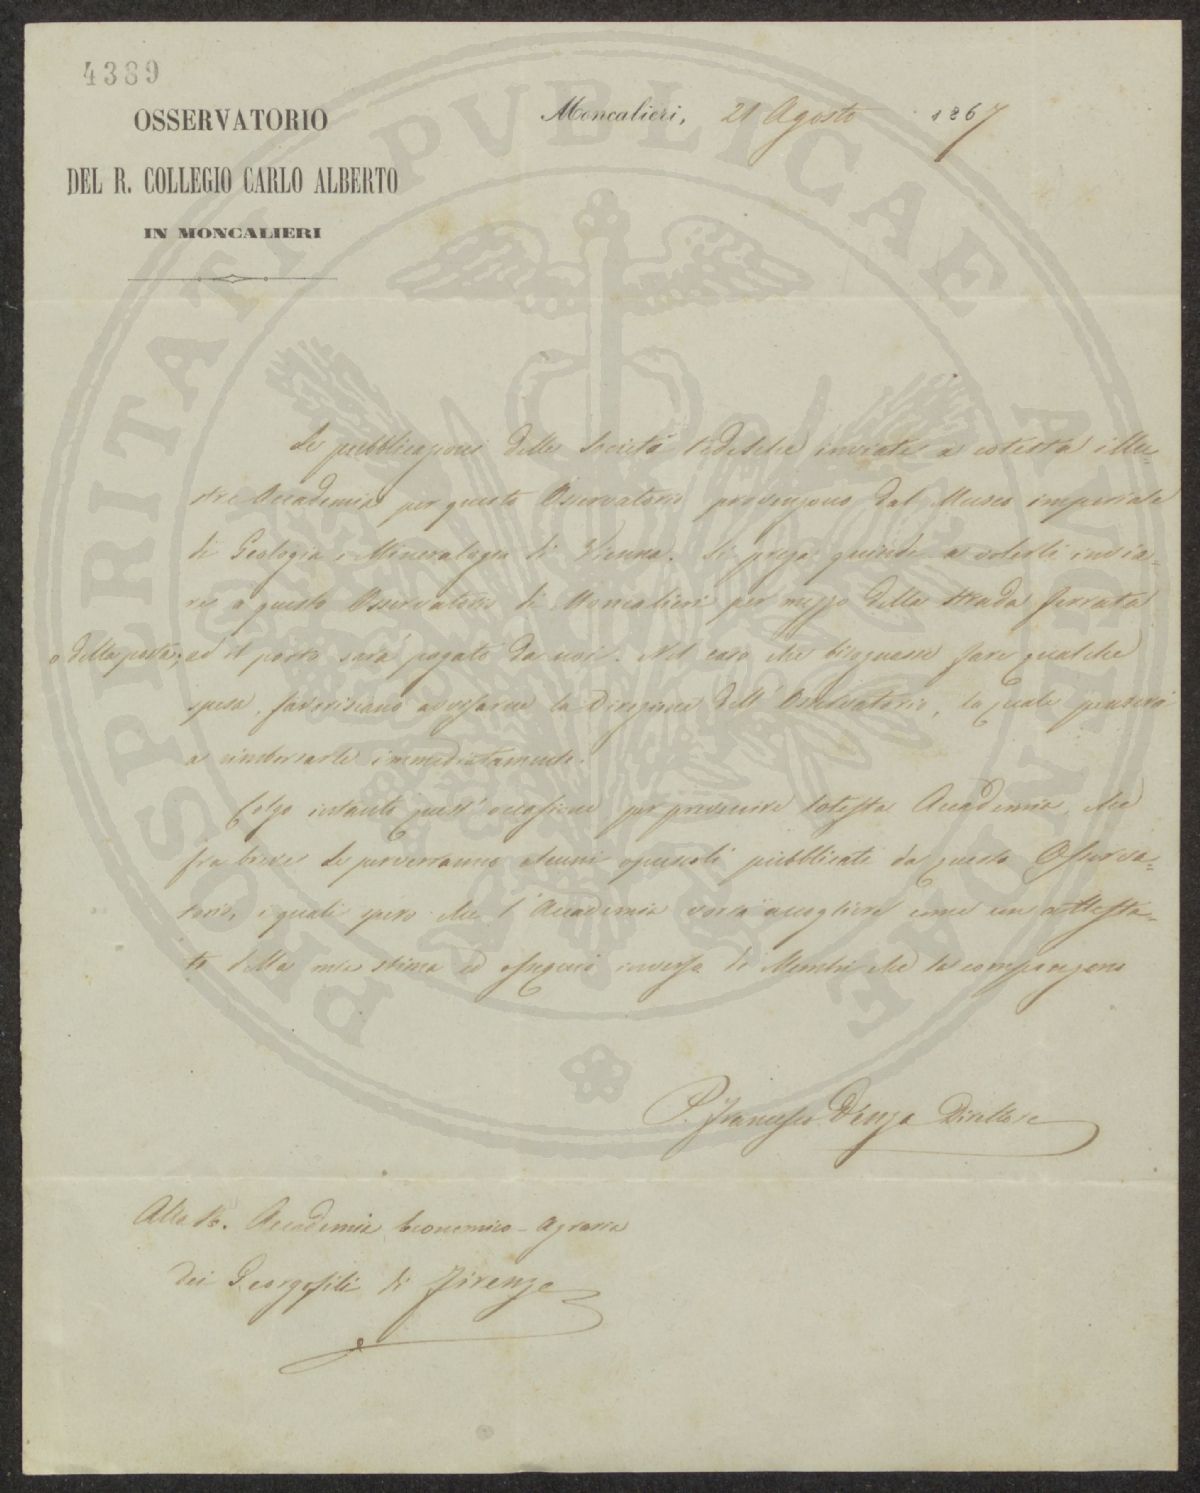 4389
OSSERVATORIO
DEL R. COLLEGIO CARLO ALBERTO
IN MONCALIERI
Moncalieri, 21 Agosto 1867
PROSPERITATI PVBLICAE AVGENDAE
Le pubblicazioni delle Società tedesche inviate a cotesta illu-
stre Accademia per questo Osservatorio provengono dal Museo imperiale
di Geologia e Mineralogia di Vienna. Si prega quindi a volerli invia-
re a questo Osservatorio di Moncalieri per mezzo della strada ferrata
o della posta; ed il porto sarà pagato da noi. Nel caso che bisognasse fare qualche
spesa, favoriscano avvisarne la Direzione dell'Osservatorio, la quale penserà
a rimborsarle immediatamente.
Colgo intanto quest'occasione per prevenire cotesta Accademia, che
fra breve le perverranno alcuni opuscoli pubblicati da questo Osserva-
torio, i quali spero che l'Accademia vorrà accogliere come un attesta-
to della mia stima ed ossequio inverso i Membri che la compongono
P. Francesco Denza Direttore
Alla R. Accademia Economico-Agraria
dei Georgofili di Firenze